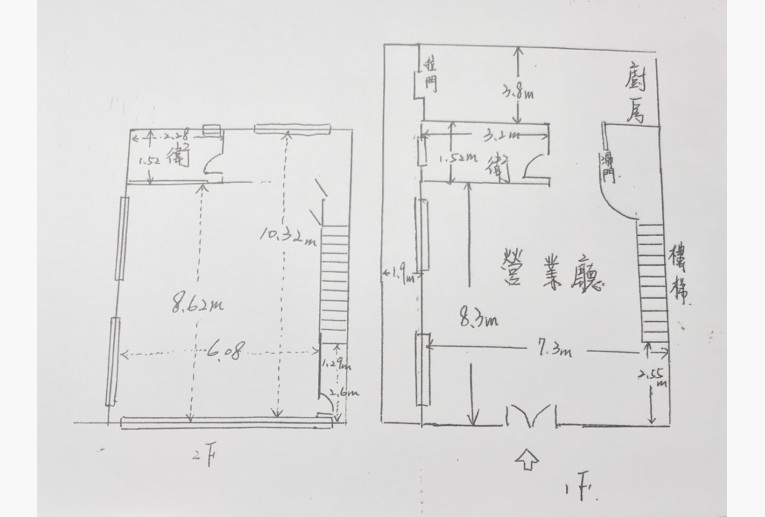 2.28
1.52
衛
10.32m
8.62m
6.08
1.29m
2.6m
2F
拉門
3.8m
廚房
3.2m
1.52m
衛
1.9m
營業廳
樓梯
8.3m
7.3m
2.55m
1F